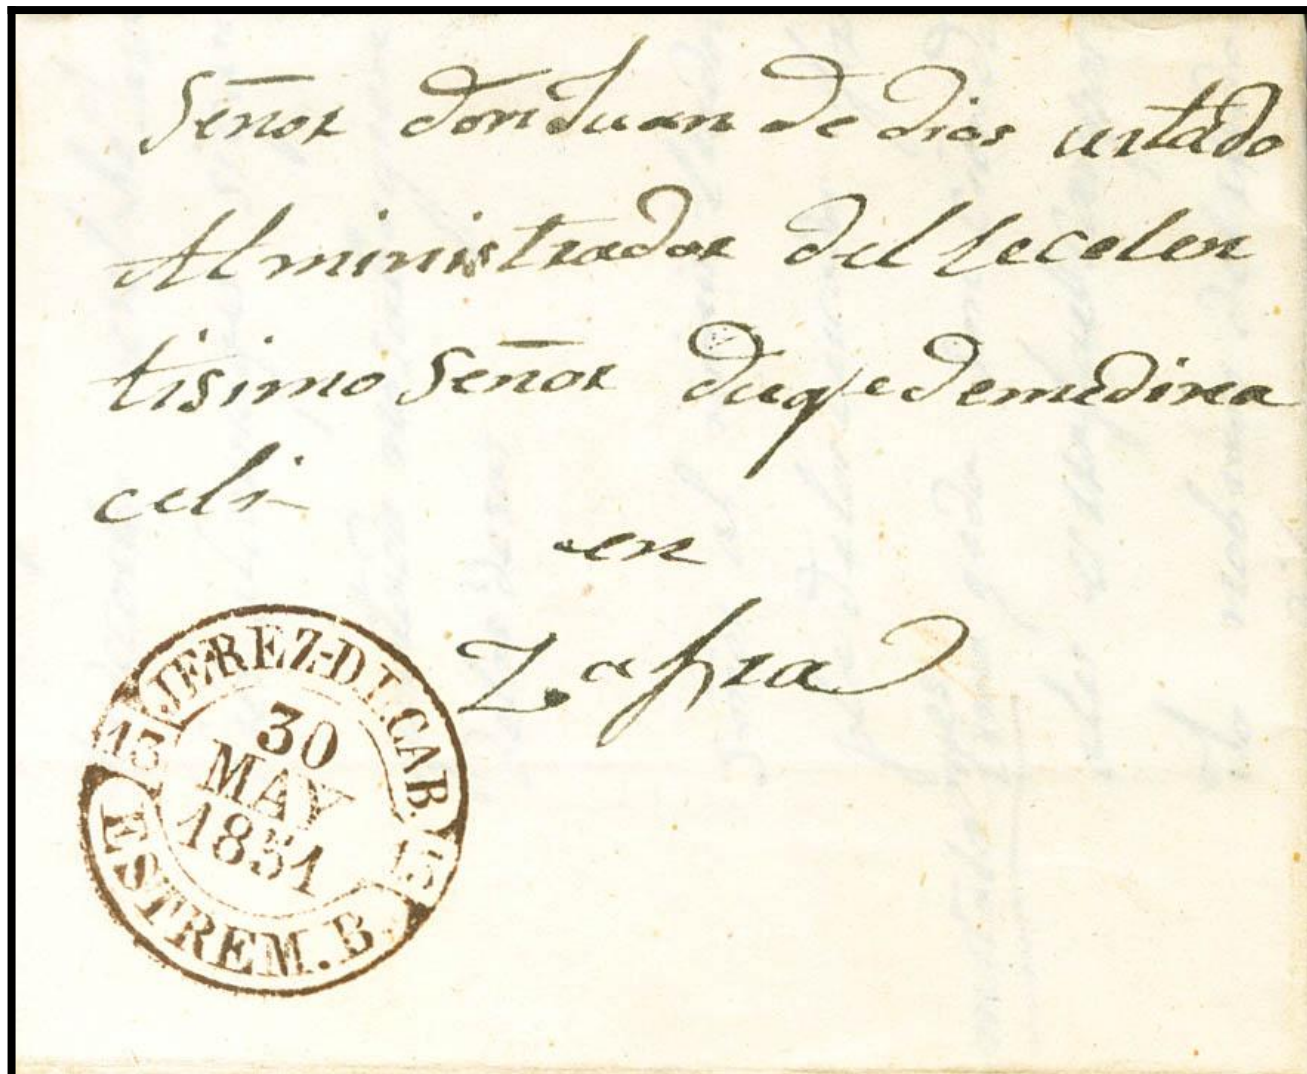 Señor don Juan de dios urtado
Alministrador del Lecelen
tisimo Señor duqe de medina
celi
en
Zafra
JEREZ-D.L.CAB.
13
30
MAY
1851
13
ESTREM.B.